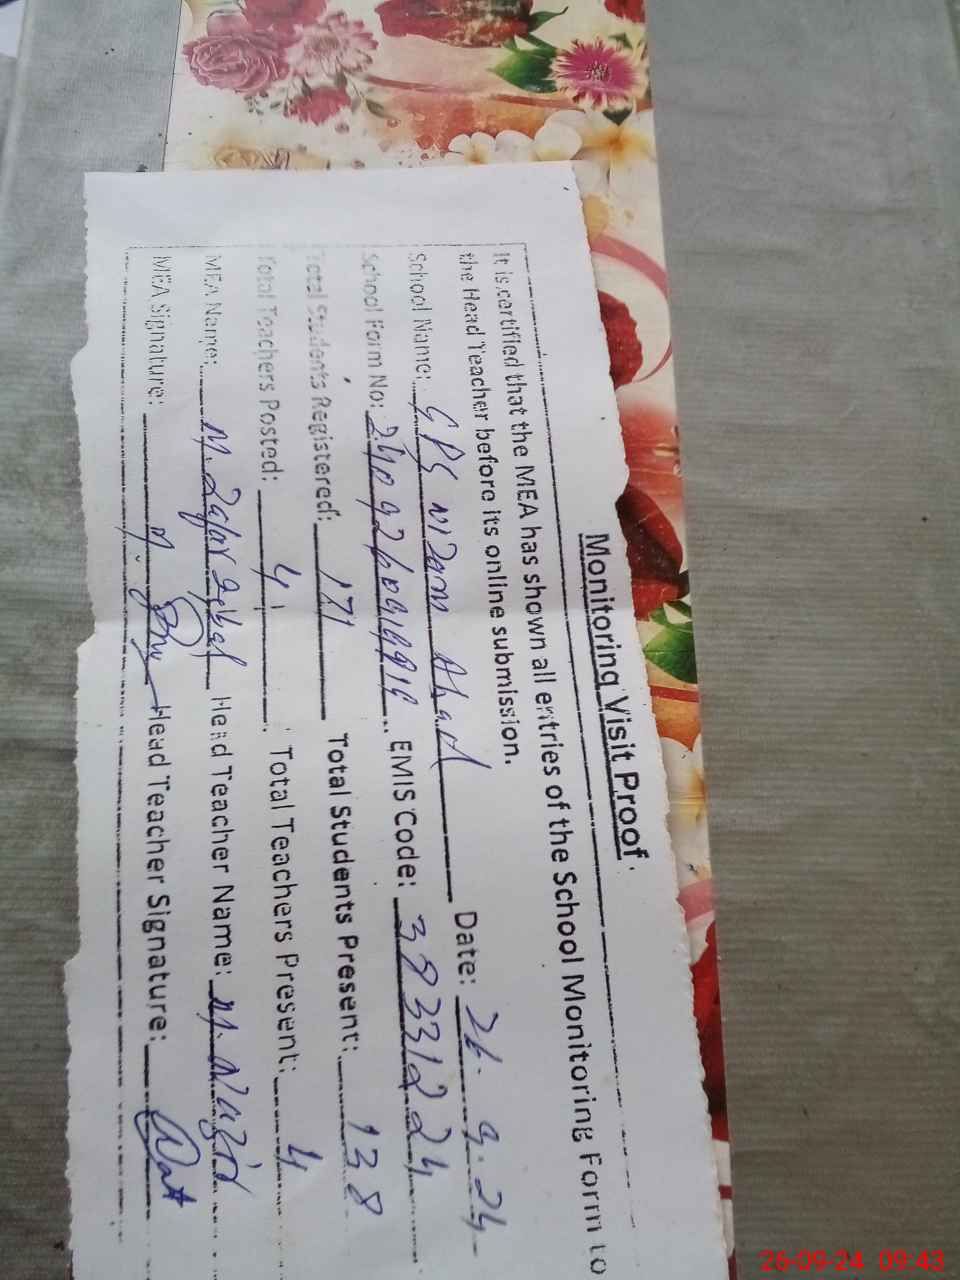 Monitoring Visit Proof
It is certified that the MEA has shown all entries of the School Monitoring Form to
the Head Teacher before its online submission.
School Name: GPS Nizam Abad Date: 26. 9. 24
School Form No: EMIS Code: 39331224
Total Students Registered: 171 Total Students Present: 138
Total Teachers Posted: 4 Total Teachers Present: 4
MEA Name: M. Zafar Iqbal Head Teacher Name: M. Nazir
MEA Signature: Head Teacher Signature:
26-09-24 09:43